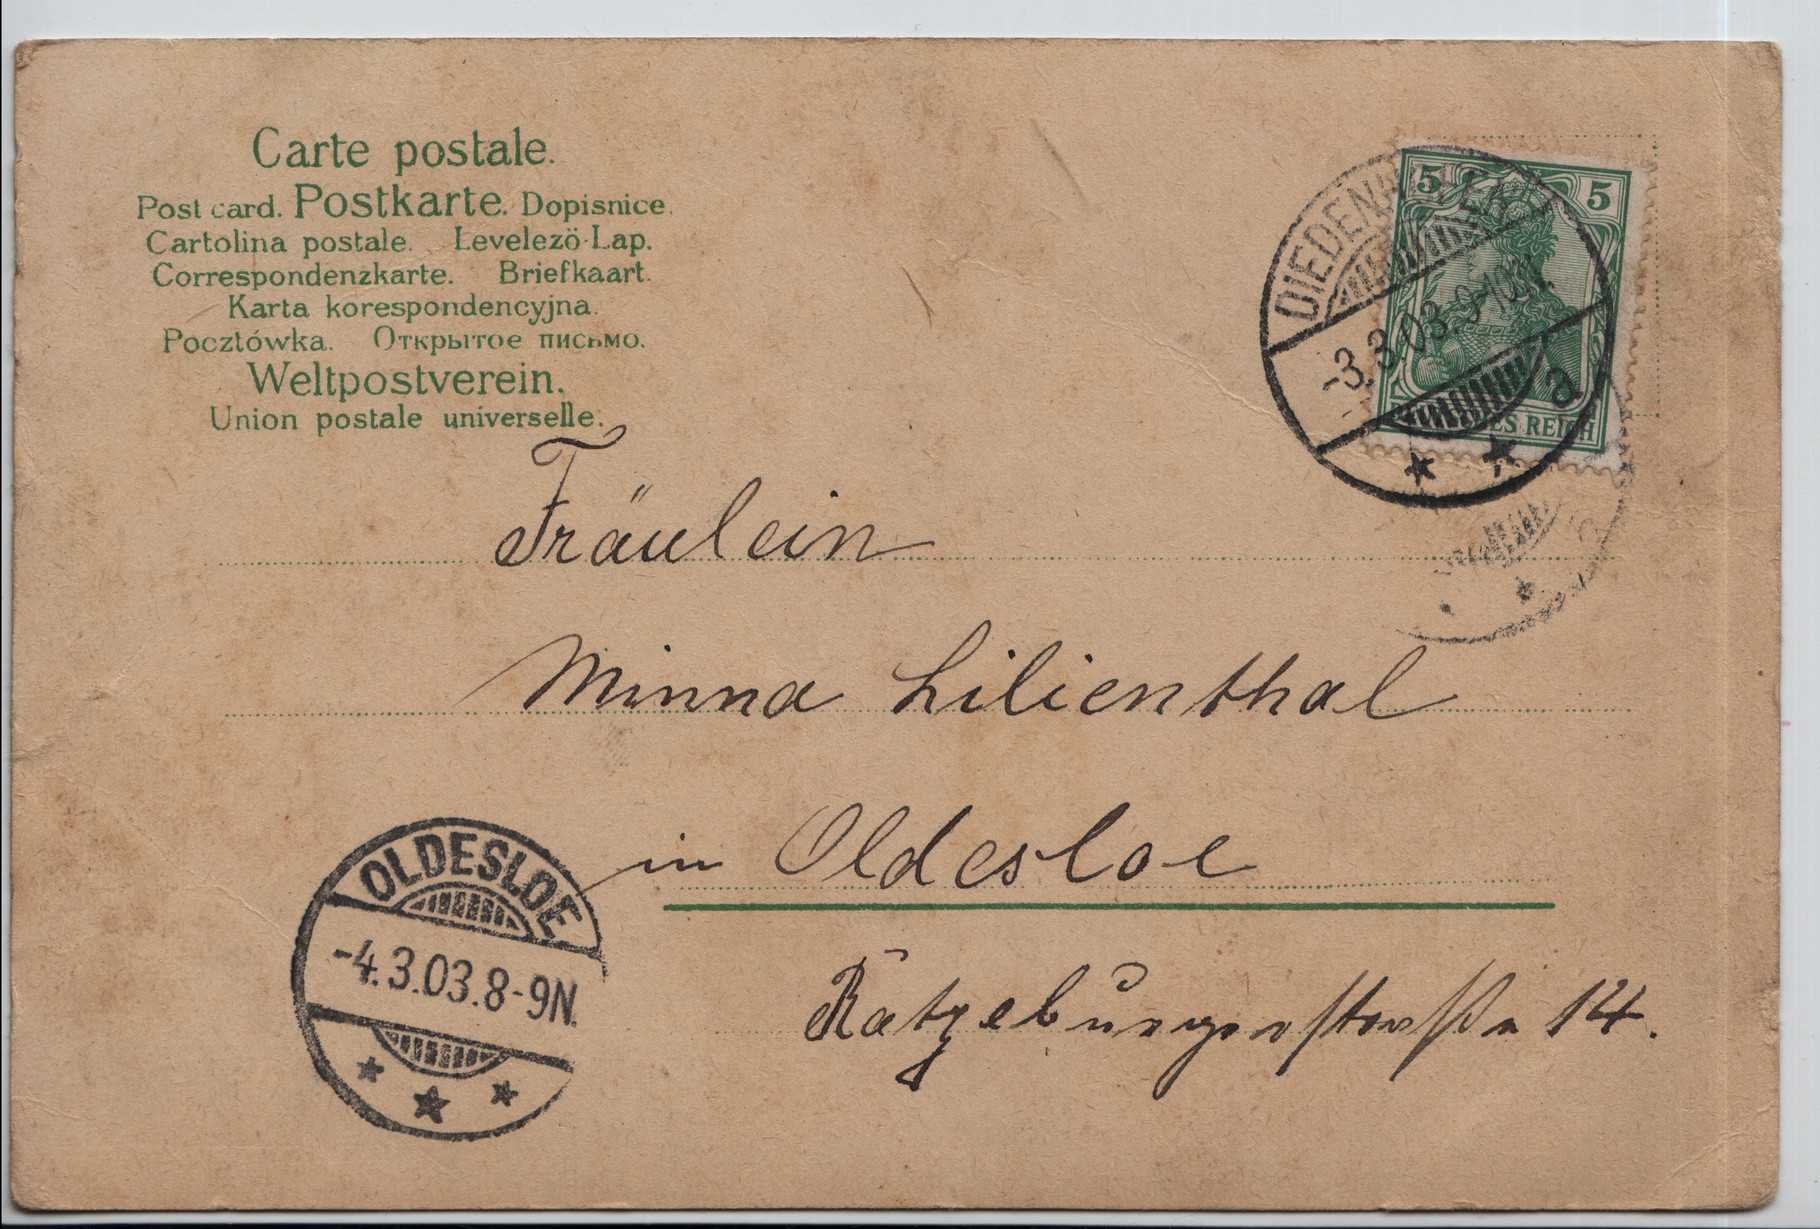 Carte postale.
Post card. Postkarte. Dopisnice.
Cartolina postale. Levelezö-Lap.
Correspondenzkarte. Briefkaart.
Karta korespondencyjna.
Pocztówka. Открытое письмо.
Weltpostverein.
Union postale universelle.
5 5
REICH
-3.3.03.9-10N.
a
Fräulein
Minna Lilienthal
in Oldesloe
Ratzeburgerstraße 14.
OLDESLOE
-4.3.03.8-9N.